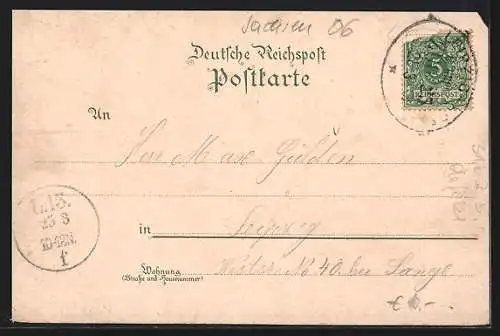 Sachsen 06
Deutsche Reichspost
Postkarte
5
REICHSPOST
An
Herr Max Gülden
in Leipzig
Wohnung
(Straße und Hausnummer)
No 40. bei Lange
L.I.3.
25 8
10-12N.
f
€ 8.-